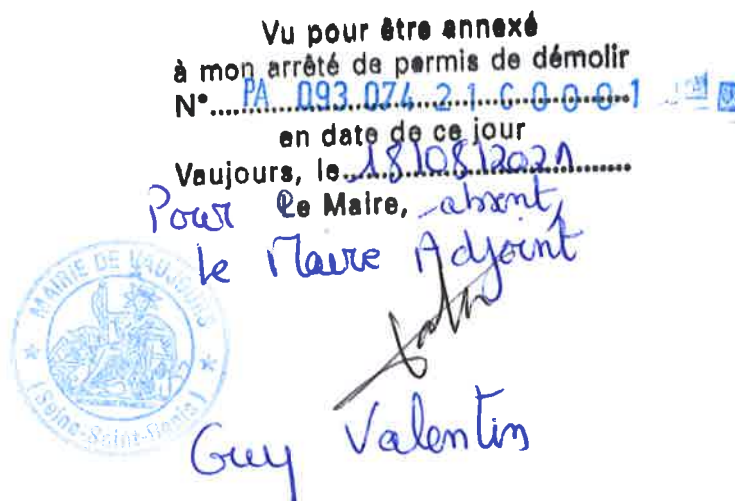 Vu pour être annexé
à mon arrêté de permis de démolir
N° PA 093 074 21 C 0001
en date de ce jour
Vaujours, le 18/08/2021
Pour Le Maire, absent,
le Maire Adjoint
MAIRIE DE VAUJOURS
(Seine-Saint-Denis)
Guy Valentin